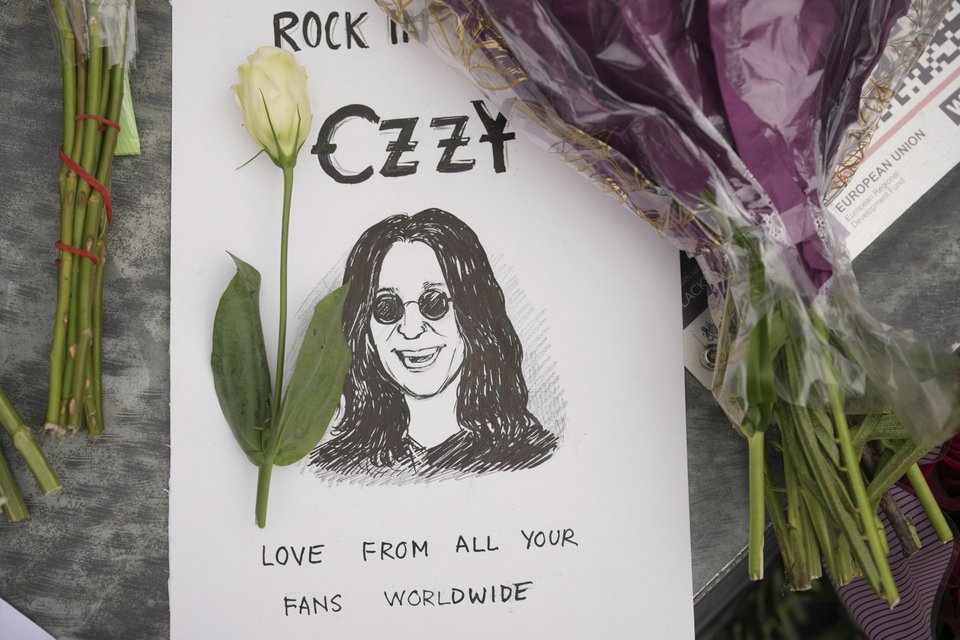 ROCK IN
OZZY
LOVE FROM ALL YOUR
FANS WORLDWIDE
EUROPEAN UNION
European Regional
Development Fund